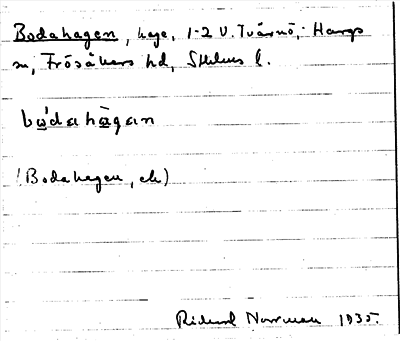 Bodahagen, hage, 1-2 V. Tvärnö, Hargs
sn, Frösåkers hd, Sthlms l.
bɷ́dahàgan
(Bodahagen, ek)
Richard Norrman 1935